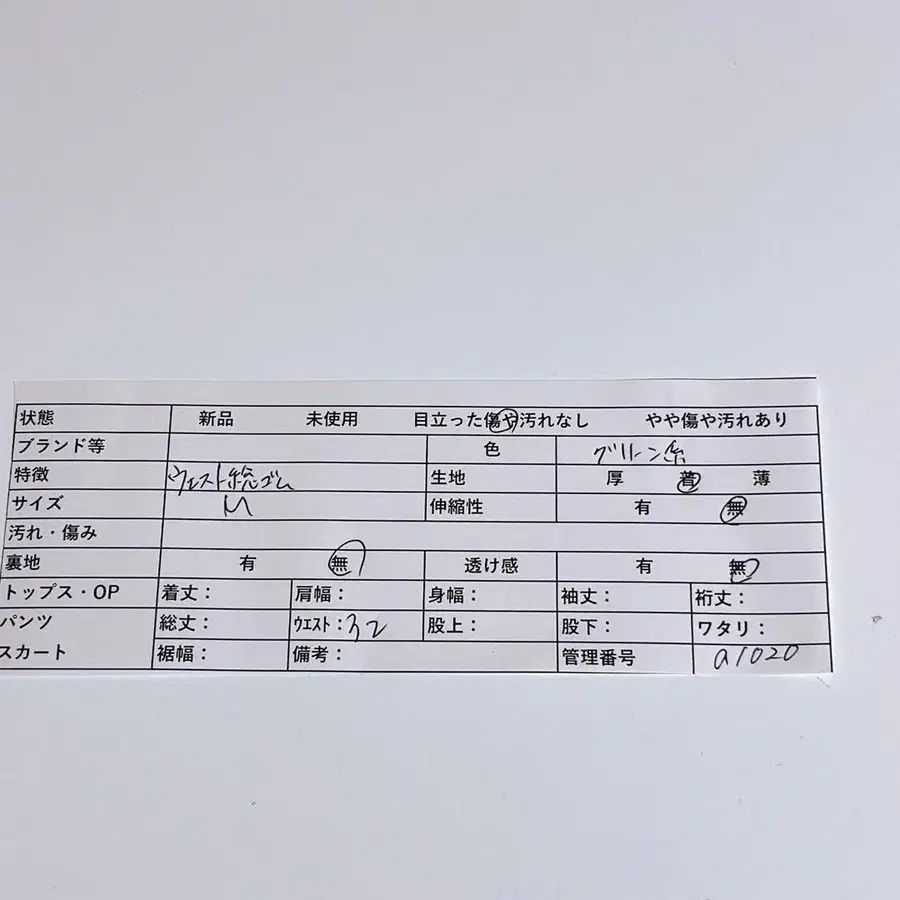 状態 新品 未使用 目立った傷や汚れなし やや傷や汚れあり
ブランド等 色 グリーン系
特徴 ウエスト総ゴム 生地 厚 着 薄
サイズ M 伸縮性 有 無
汚れ・傷み
裏地 有 無 透け感 有 無
トップス・OP 着丈: 肩幅: 身幅: 袖丈: 裄丈:
パンツ 総丈: ウエスト:32 股上: 股下: ワタリ:
スカート 裾幅: 備考: 管理番号 a1020